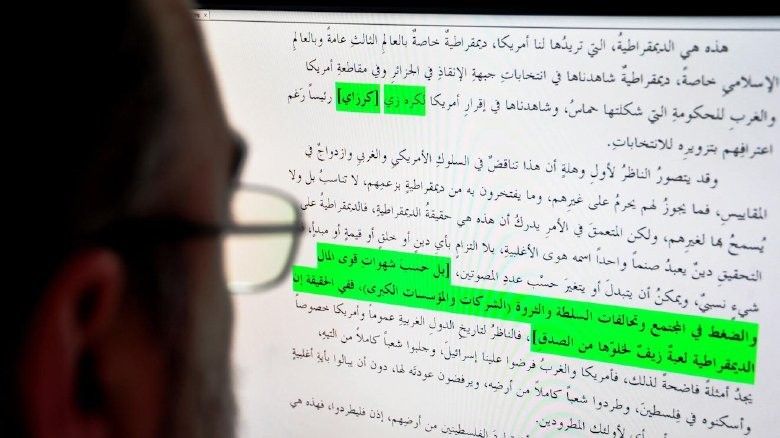 هذه هي الديمقراطيةُ، التي تريدُها لنا أمريكا، ديمقراطيةٌ خاصةٌ بالعالمِ الثالثِ عامةً وبالعالمِ
الإسلامي خاصةً، ديمقراطيةٌ شاهدناها في انتخاباتِ جبهةِ الإنقاذِ في الجزائرِ وفي مقاطعةِ أمريكا
والغربِ للحكومةِ التي شكلتها حماسُ، وشاهدناها في إقرارِ أمريكا لكره زي [كرزاي] رئيساً رَغم
اعترافِهم بتزويرِه للانتخاباتِ.
وقد يتصورُ الناظرُ لأولِ وهلةٍ أن هذا تناقضٌ في السلوكِ الأمريكي والغربي وازدواجٌ في
المقاييسِ، فما يجوزُ لهم يحرمُ على غيرِهم، وما يفتخرون به من ديمقراطيةٍ بزعمِهم، لا تناسبُ بل ولا
يُسمحُ بها لغيرِهم، ولكن المتعمقَ في الأمرِ يدركُ أن هذه هي حقيقةُ الديمقراطيةِ، فالديمقراطيةُ على
التحقيقِ دينٌ يعبدُ صنماً واحداً اسمه هوى الأغلبيةِ، بلا التزامٍ بأي دينٍ أو خلقٍ أو قيمةٍ أو مبدأٍ،
شيءٍ نسبيٌ، ويمكنُ أن يتبدلَ أو يتغيرَ حسْب عددِ المصوتين، [بل حسْبَ شهواتِ قوى المالِ
والضغطِ في المجتمعِ وتحالفات السلطةِ والثروةِ (الشركات والمؤسسات الكبرى)، ففي الحقيقة إن
الديمقراطية لعبةُ زيفٍ لخلوّها من الصدق]، فالناظرُ لتاريخِ الدولِ الغربيةِ عموماً وأمريكا خصوصاً
يجدُ أمثلةً فاضحةً لذلك، فأمريكا والغربُ فرضوا علينا إسرائيلَ، وجلبوا شعباً كاملاً من التيهِ،
وأسكنوه في فلسطينَ، وطردوا شعباً كاملاً من أرضِه، ويرفضون عودتَه لها، دون أن يبالوا بأيةِ أغلبيةٍ
أي لأولئك المطرودين.
الفلسطينيين من أرضِهم، إذن فليطردوا، فهذه هي